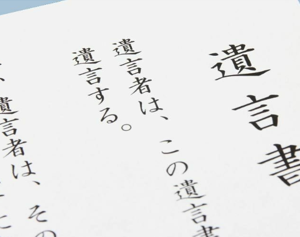 遺言書
遺言者は、この遺言書
遺言する。
遺言者は、その